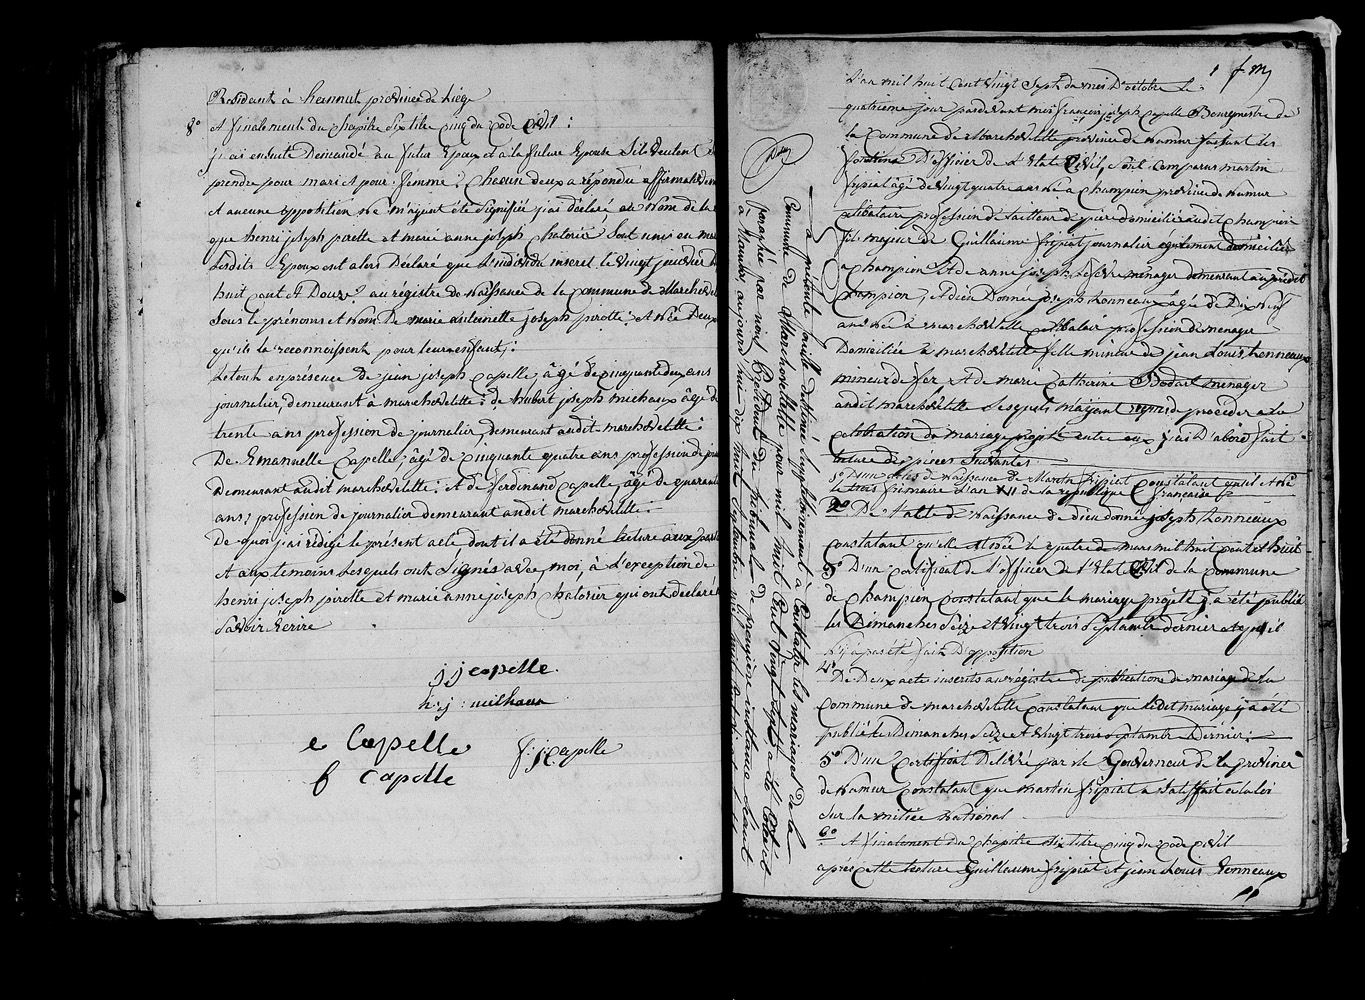 Residant à hannut province de Liége
8° Et finalement du chapitre six titre cinq du code Civil :
j'ai ensuite Demandé au futur Epoux et à la future Epouse S'ils veulent
prendre pour mari et pour femme : Chacun deux a répondu affirmativem
Et aucune opposition ne m'ayant été signifiée j'ai déclaré au Nom de la
que henri joseph pirotte et marie anne joseph Chatorier Sont unis en ma
Lesdits Epoux ont alors Déclaré que L'individu inscrit le vingt janvier
huit cent Et Douze au registre de Naissance de la commune de Marchovelette
Sous le prénoms et Nom De marie antoinette joseph pirotte : Et Née Deux
qu'ils la reconnoissent pour leur enfant ;
Le tout en présence de jean joseph Capelle âgé de cinquante deux ans
journalier, demeurant à marchovelette : de hubert joseph michaux âgé de
trente ans profession de journalier, demeurant audit marchovelette :
De Emanuelle Capelle, âgé de cinquante quatre ans profession de jour
Demeurant audit marchovelette : Et de ferdinand Capelle âgé de quarante
ans ; profession de journalier demeurant audit marchovelette :
De quoi j'ai rédigé le présent acte dont il a été donné lecture aux parti
Et aux temoins Lesquels ont Signés avec moi, à l'exception de
henri joseph pirotte et marie anne joseph Chatorier qui ont déclaré
Savoir Ecrire
j j capelle
h : j : michaux
e Capelle
f : j Capelle
f Capelle
La présente feuille destinée Supplémentairement à Constater les mariages de la
Commune de Marchovelette pour mil huit Cent Vingt Sept a été Cotée et
paraphée par nous Président du tribunal de première instance Séant
à Namur aujourd'hui dix huit Septembre mil huit Cent
L'an mil huit Cent Vingt Sept du mois D'octobre le
quatrieme jour pardevant moi françois joseph Capelle Bourgmestre de
la Commune de Marchovelette province de Namur faisant les
fonctions D'officier de l'Etat Civil, Sont comparus martin
fripiat âgé de vingt quatre ans né à Champion province de Namur
célibataire profession de tailleur de pierre domicilié audit Champion
fils majeur de Guillaume fripiat journalier également domicilié
à Champion Et de anne joseph Lefèvre ménager demeurant au prédit
Champion ; Et dieu Donnée joseph honneaux âgée de Dix Neuf
ans née à marchovelette célibatair profession de menager
Domiciliée à marchovelette fille mineur de jean Louis honneaux
mineur de fer Et de marie Catherine Bodart menager
audit marchovelette Lesquels m'ayant requis de procéder à la
célébration du mariage projeté entre eux j'ai D'abord fait
lecture des pieces Suivantes
1° D'un actes de naissance de Martin fripiat Constatant qu'il est né
le trois frimaire L'an XII de la république française
2° De l'acte de Naissance de dieu donnée joseph honneaux
constatant qu'elle est née le quatre de mars mil huit cent et huit
3° D'un certificat de l'officier de l'Etat Civil de la Commune
de Champion constatant que le mariage projetté y a été publié
les Dimanches Seize et vingt trois Septembre dernier et qu'il
n'y a pas été fait D'opposition
4° De Deux actes inscrits au régistre de publication de mariage de la
Commune de marchovelette constatant que ledit mariage y a été
publié les Dimanches Seize et vingt trois Septembre Dernier :
5° D'un Certificat Délivré par le Gouverneur de la province
de Namur constatant que martin fripiat a Satisfait à la loi
Sur la milice National
6° Et finalement du chapitre Six titre cinq du code civil
après cette lecture Guillaume fripiat et jean Louis honneaux